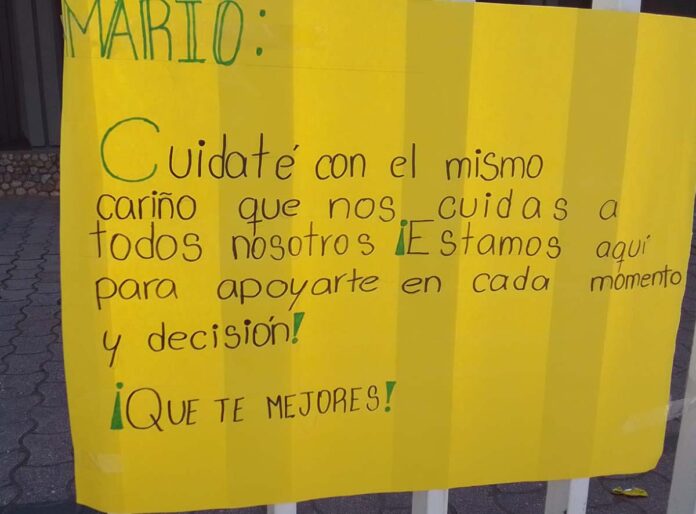 MARIO:
Cuidaté con el mismo
cariño que nos cuidas a
todos nosotros ¡Estamos aquí
para apoyarte en cada momento
y decisión!
¡QUE TE MEJORES!